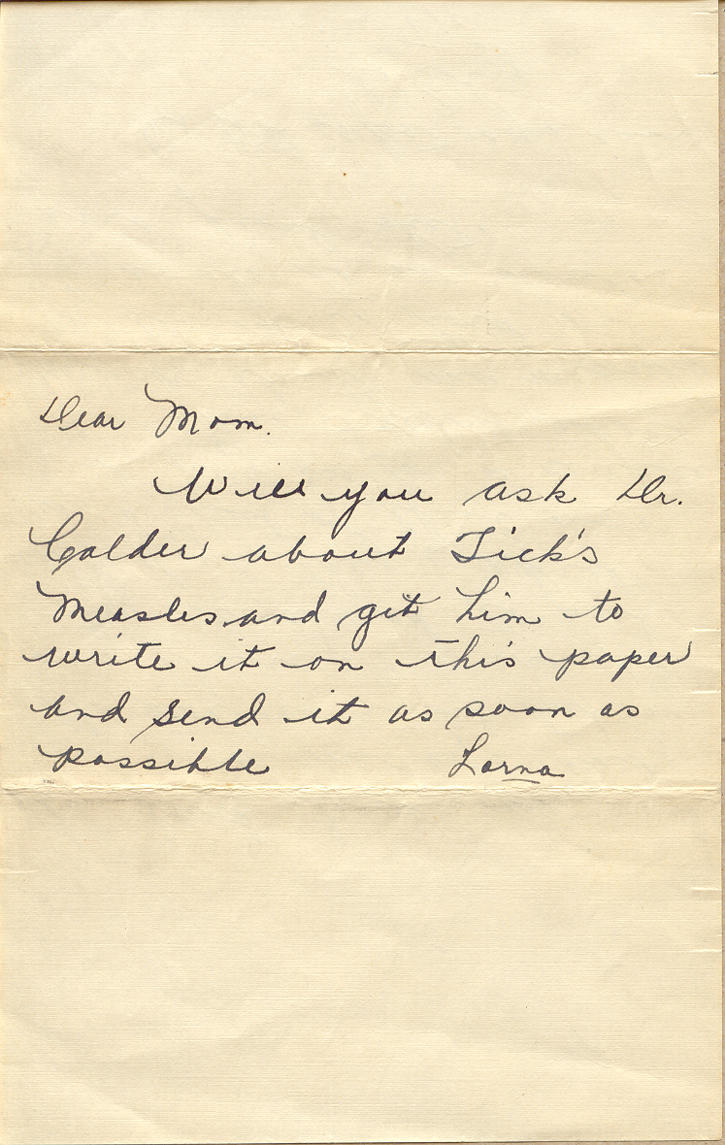 Dear Mom.
Will you ask Dr.
Calder about Tick's
Measles and get him to
write it on this paper
and send it as soon as
possible Lorna